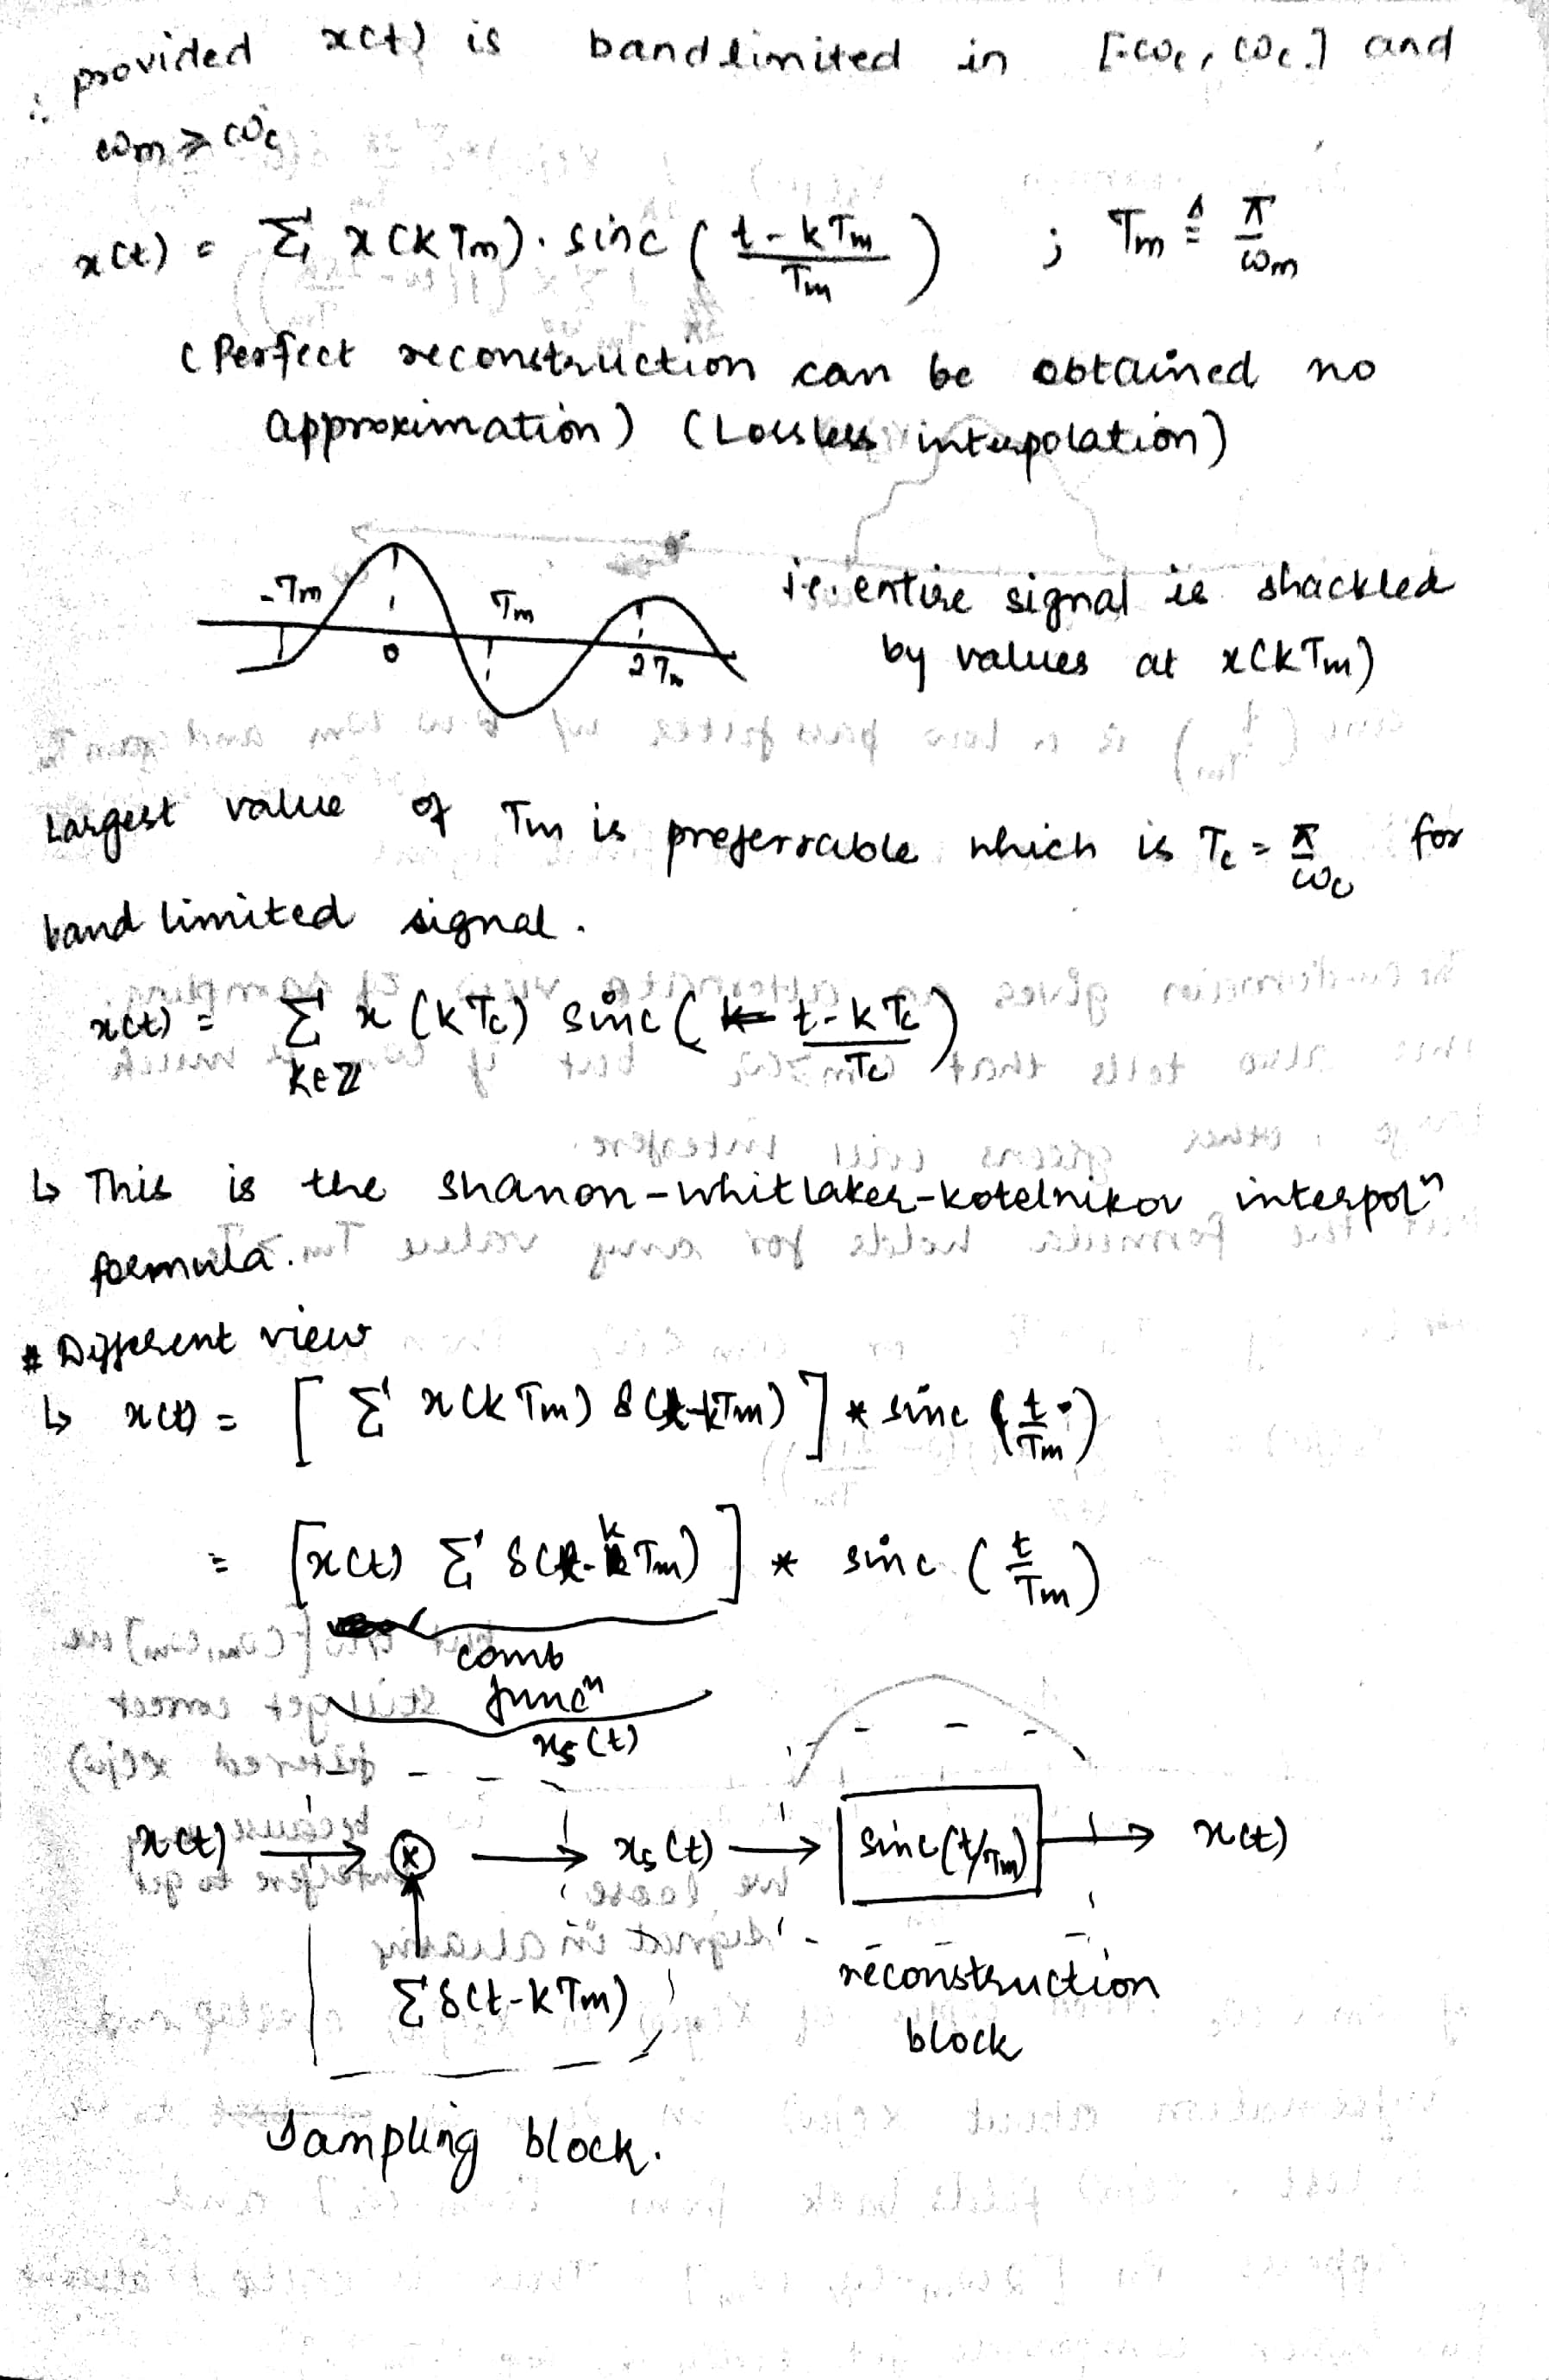 ∴ provided x(t) is bandlimited in [-ωc, ωc] and
ωm ⩾ ωc
x(t) = Σ x(kTm). sinc ( (t - kTm)/Tm ) ; Tm ≜ π/ωm
(Perfect reconstruction can be obtained no
approximation) (Lossless interpolation)
-Tm 0 Tm 2Tm
ie. entire signal is shackled
by values at x(kTm)
Largest value of Tm is preferrable which is Tc = π/ωc for
band limited signal.
x(t) = Σ k∈ℤ x(kTc) sinc ( (t - kTc)/Tc )
↳ This is the shanon-whitlaker-kotelnikov interpolⁿ
formula.
# Different view
↳ x(t) = [ Σ x(kTm) δ(t-kTm) ] * sinc (t/Tm)
= [x(t) Σ δ(t-kTm) ] * sinc (t/Tm)
comb
funcⁿ
xs(t)
x(t) → ⊗ → xs(t) → sinc(t/Tm) → x(t)
Σδ(t-kTm)
reconstruction
block
Sampling block.